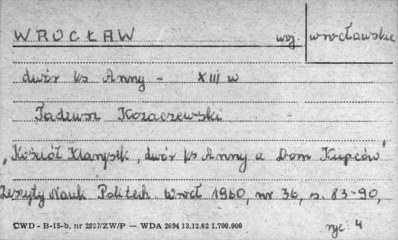 WROCŁAW woj. wrocławskie
dwór ks Anny - XIII w
Tadeusz Kozaczewski
"Kościół Klarysek, dwór ks Anny a Dom Kupców"
Zeszyty Nauk Politech. Wrocł 1960, nr 36, s. 83-90,
CWD - B-15-b, nr 2827/ZW/P — WDA 2694 13.12.62 1.700.000
ryc. 4